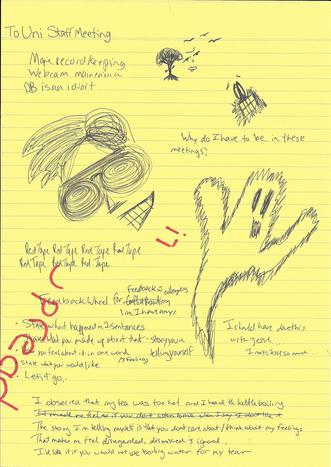 To Uni Staff Meeting
More record keeping
Webcam
DB is an idiot
Why do I have to be in these
meetings?
Red Tape Red Tape Red Tape Red Tape
Red Tape Red Tape Red Tape
L!
Feedback is
Feedback Wheel for
· State what happened in 2 sentences
what you made up about that - story you're
telling yourself
you feel about it in one word
feelings
state what you would like
· Let it go.
I should have done this
with Jess.
I miss her so much.
I observed that my tea was too hot and I heard the kettle boiling
The story I'm telling myself is that you don't care about / think about my feelings
That makes me feel disregarded, dismissed & ignored
I'd like it if you would not use boiling water for my tea